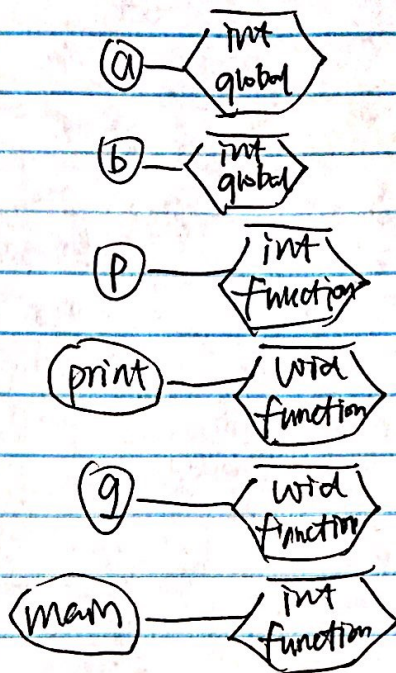 a int
global
b int
global
p int
function
print void
function
q void
function
main int
function